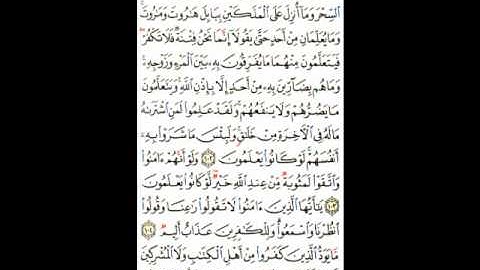 السِّحْرَ وَمَآ أُنزِلَ عَلَى ٱلْمَلَكَيْنِ بِبَابِلَ هَٰرُوتَ وَمَٰرُوتَ ۚ
وَمَا يُعَلِّمَانِ مِنْ أَحَدٍ حَتَّىٰ يَقُولَآ إِنَّمَا نَحْنُ فِتْنَةٌ فَلَا تَكْفُرْ ۖ
فَيَتَعَلَّمُونَ مِنْهُمَا مَا يُفَرِّقُونَ بِهِۦ بَيْنَ ٱلْمَرْءِ وَزَوْجِهِۦ ۚ
وَمَا هُم بِضَآرِّينَ بِهِۦ مِنْ أَحَدٍ إِلَّا بِإِذْنِ ٱللَّهِ ۚ وَيَتَعَلَّمُونَ
مَا يَضُرُّهُمْ وَلَا يَنفَعُهُمْ ۚ وَلَقَدْ عَلِمُوا۟ لَمَنِ ٱشْتَرَىٰهُ
مَا لَهُۥ فِى ٱلْـَٔاخِرَةِ مِنْ خَلَٰقٍ ۚ وَلَبِئْسَ مَا شَرَوْا۟ بِهِۦٓ
أَنفُسَهُمْ ۚ لَوْ كَانُوا۟ يَعْلَمُونَ ١٠٢ وَلَوْ أَنَّهُمْ ءَامَنُوا۟
وَٱتَّقَوْا۟ لَمَثُوبَةٌ مِّنْ عِندِ ٱللَّهِ خَيْرٌ ۖ لَّوْ كَانُوا۟ يَعْلَمُونَ
١٠٣ يَٰٓأَيُّهَا ٱلَّذِينَ ءَامَنُوا۟ لَا تَقُولُوا۟ رَٰعِنَا وَقُولُوا۟
ٱنظُرْنَا وَٱسْمَعُوا۟ ۗ وَلِلْكَٰفِرِينَ عَذَابٌ أَلِيمٌ ١٠٤
مَّا يَوَدُّ ٱلَّذِينَ كَفَرُوا۟ مِنْ أَهْلِ ٱلْكِتَٰبِ وَلَا ٱلْمُشْرِكِينَ